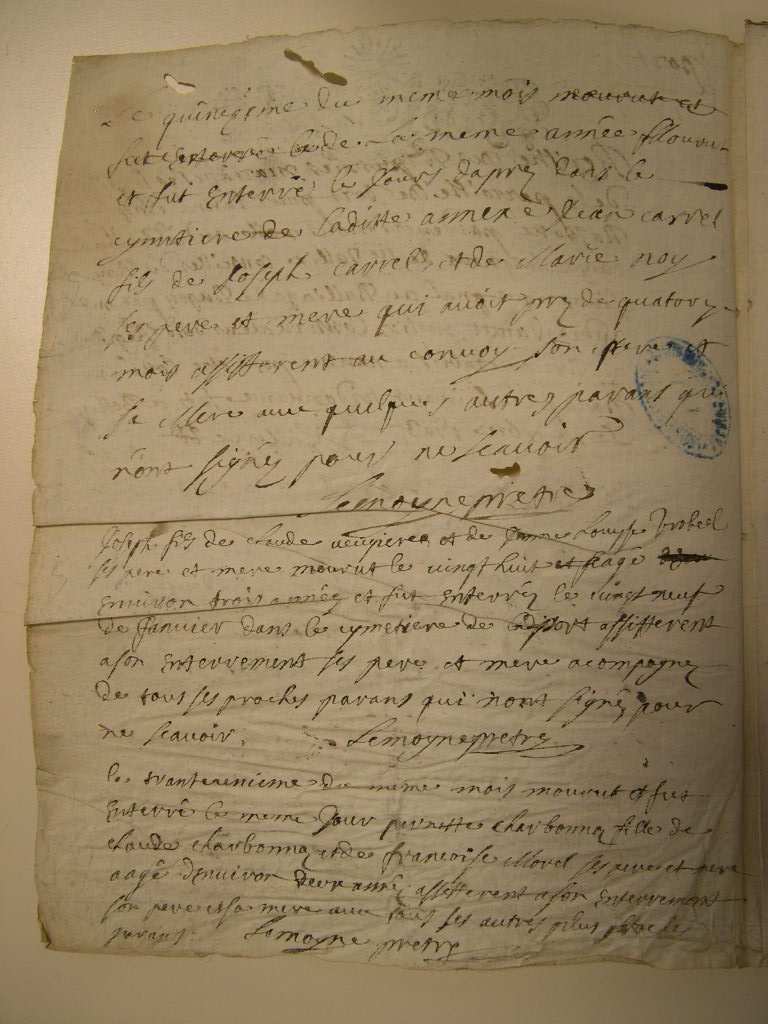 Le quinziesme du meme mois mourut et
fut enterré de la meme année mouru
et fut enterré le jours dapres dans le
cymitiere de laditte annexe Jean carrel
fils de Joseph carrel et de Marie noy
ses pere et mere qui avoit pres de quatorz
mois assisterent au convoy son pere et
sa Mere avec quelques autres parans qui
n'ont signés pour ne scavoir
Lemoyne pretre
Joseph fils de claude et de Louyse
ses pere et mere mourut le vingt huit et agé
environ trois années et fut enterré le vingt neuf
de janvier dans le cymetiere de assisterent
a son enterrement ses pere et mere acompagnez
de tous ses proches parans qui n'ont signés pour
ne scavoir. Lemoyne pretre
le trantunieme du meme mois mourut et fut
enterré le meme Jour pernette charbonnez fille de
claude charbonnez et de francoise Morel ses pere et mere
aagé d'environ deux année assisterent a son enterrement
son pere et sa mere avec tous ses autres plus proche
parans Lemoyne pretre